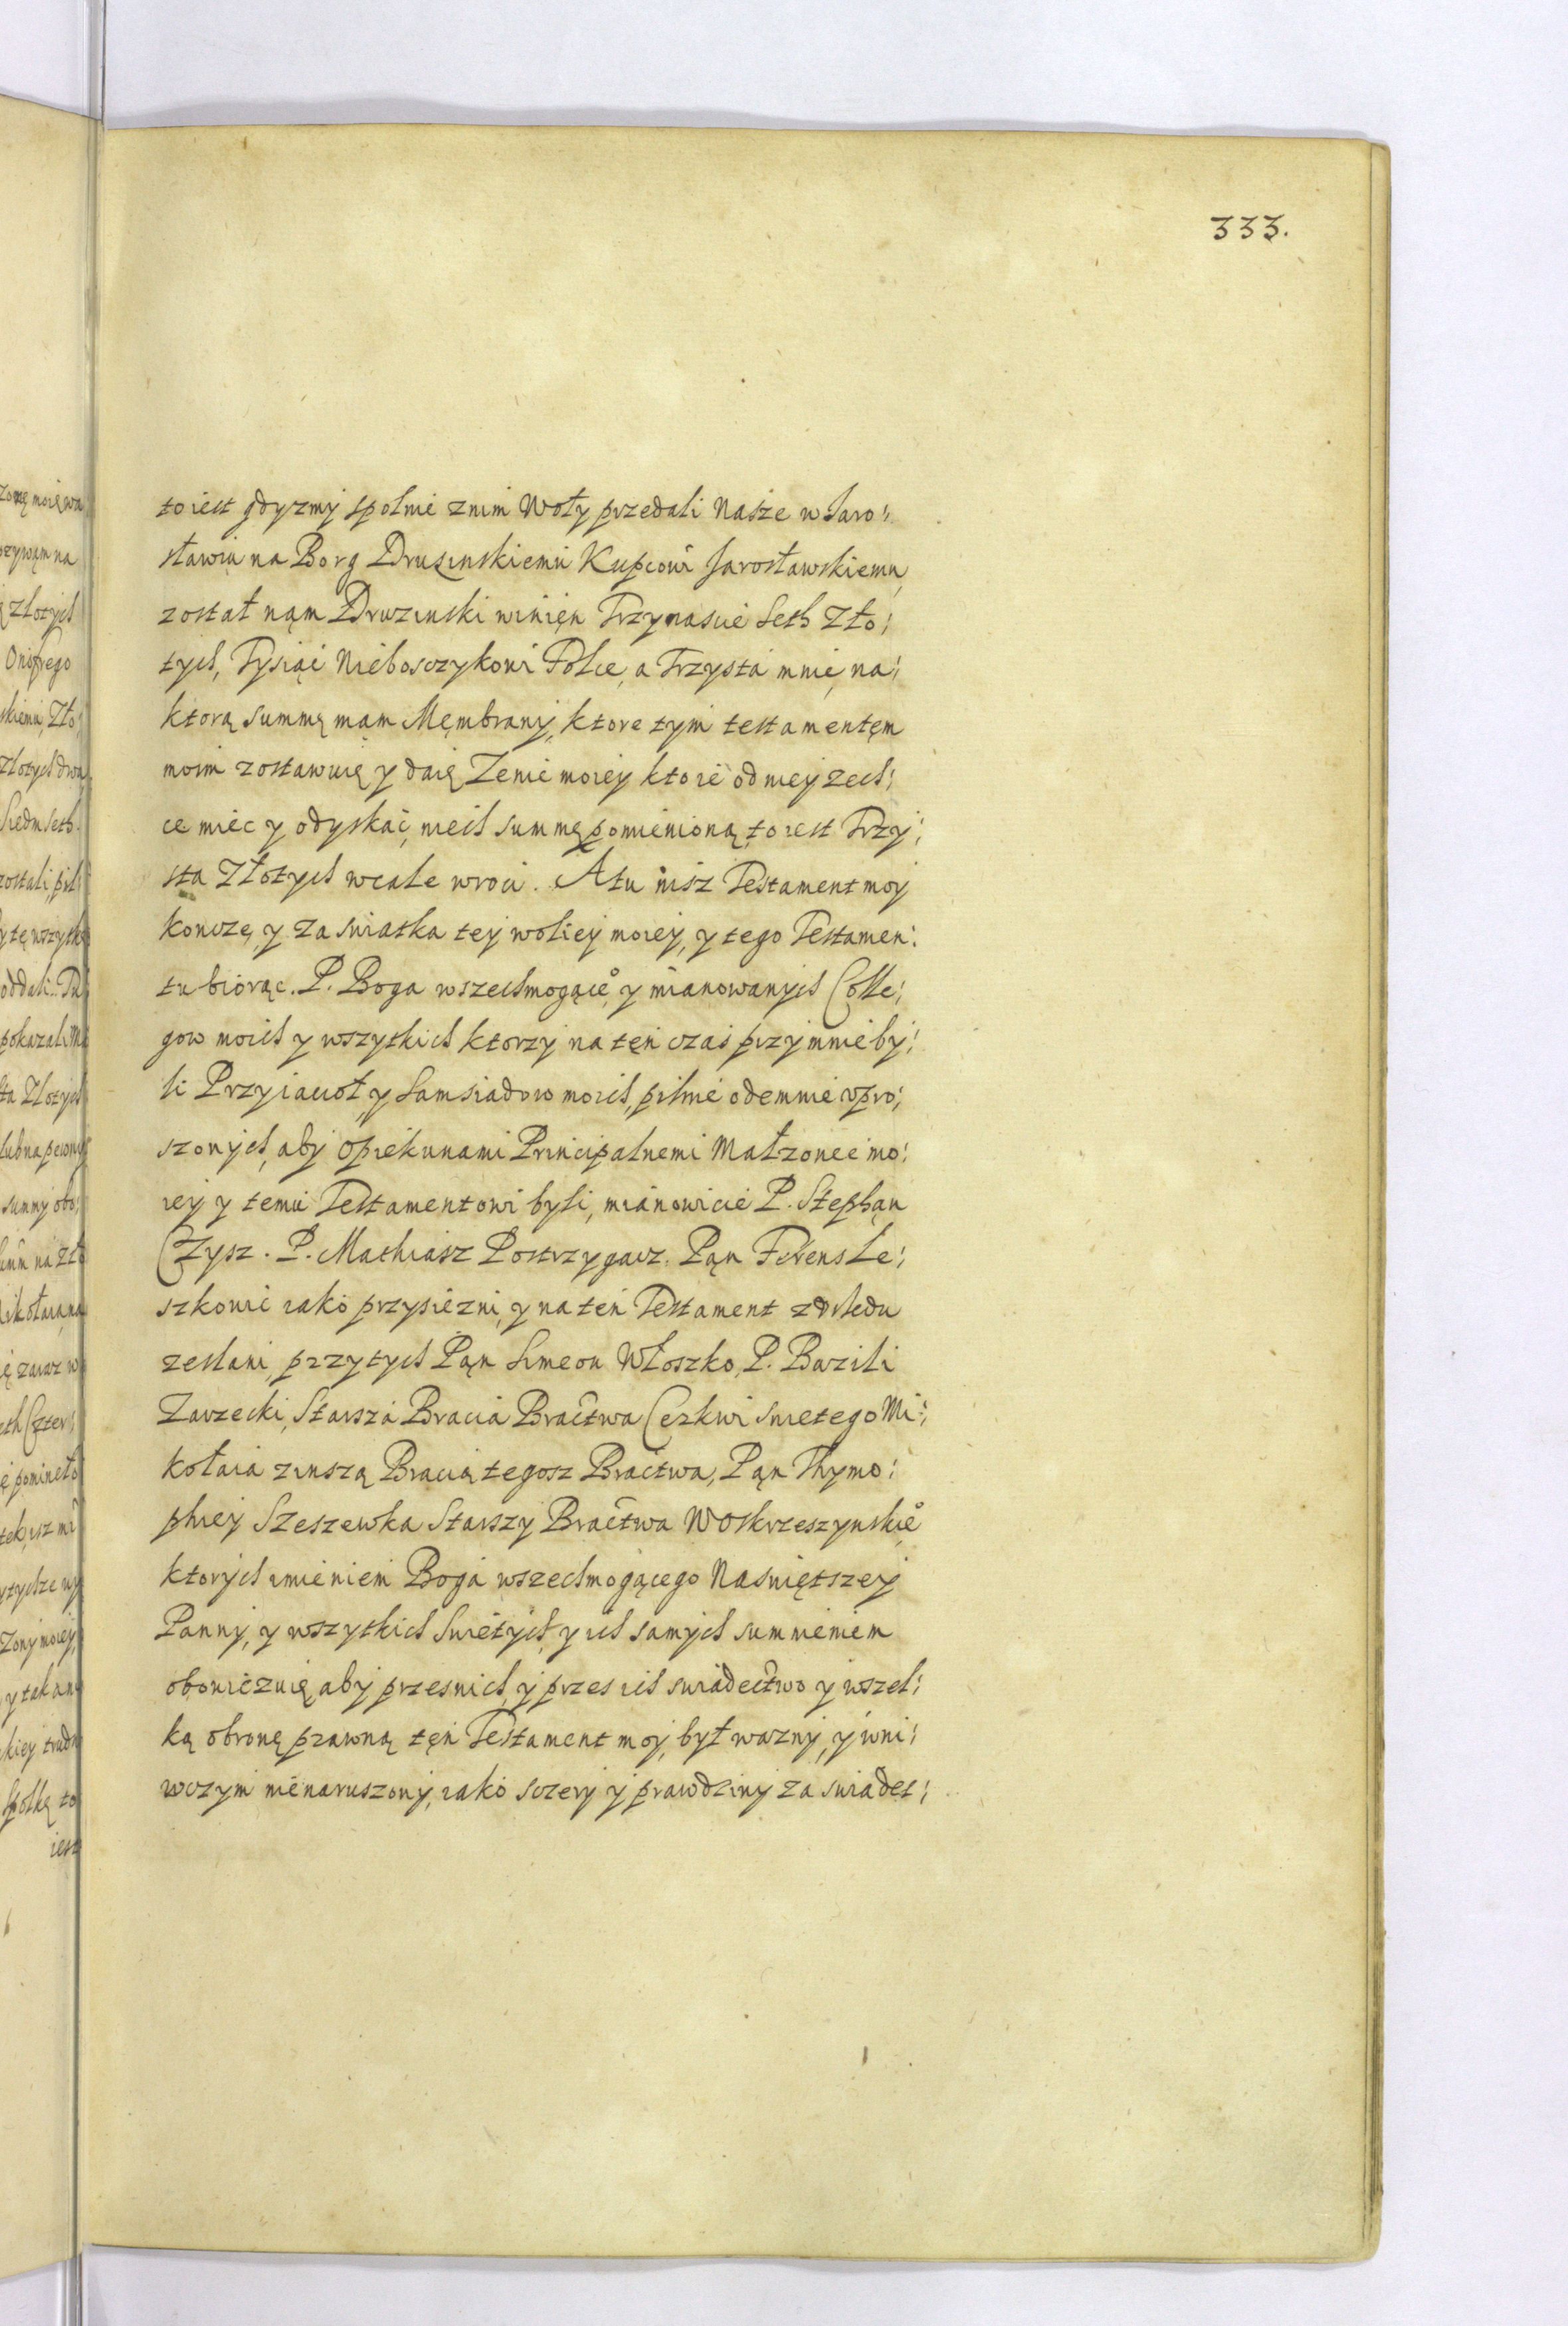 333.
to iest gdyzmy spolnie znim Woły przedali Nasze w Jaro:
sławiu na Borg Druzinskiemu Kupcowi Jarosławskiemu
został nąm Druzinski winięn Trzynascie Seth Zło:
tych, Tysiąc Nieboszczykowi Polce, a Trzysta mnie, na:
ktorą summę mąm Męmbrany, ktore tym testamentęm
moim zostawuię y daię Zenie moiey ktore od niey zech:
ce miec y odyskac, niech summę pomienioną to iest Trzy:
sta Złotych wcale wroci. A tu iusz Testament moy
koncze, y za swiatka tey woliey moiey, y tego Testamen:
tu biorąc. P. Boga wszechmogące° y mianowanych Colle:
gow moich y wszytkich ktorzy na tęn czas przy mnie by:
li Przyiacioł, y Samsiadow moich, pilnie odemnie vpro:
szonych, aby Opiekunami Principalnemi Małzonce mo:
iey y temu Testamentowi byli, mianowicie P. Stephąn
Czysz. P. Mathiasz Postrzygacz. Pąn Ferens Le:
szkowic iako przysiezni, y na ten Testament z Vrzedu
zesłani, przy tych Pąn Simeon Włoszko, P. Bazili
Zarzecki, Starsza Bracia Bractwa Cerkwi swietego Mi:
kołaia z inszą Bracią tegosz Bractwa, Pąn Thymo:
phiey Szeszewka Starszy Bractwa Woskrzeszynskie°
ktorych imieniem Boga wszechmogącego Naswiętszey
Panny, y wszytkich Swietych, y ich samych summieniem
obowiezuię, aby przesnich, y przes ich swiadectwo y wszel:
ką obronę prawną tęn Testament moy, był wazny, y w ni:
wczym nienaruszony, iako sczery y prawdziwy za swiadec: